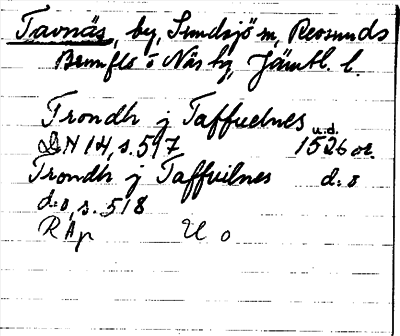 Tavnäs, by, Sundsjö sn, Revsunds
Brunflo o Näs hg, Jämtl. l.
Trondh j Taffuelnes u.d.
DN 14, s. 517 1526 or.
Trondh j Taffvilnes d:o
d:o, s. 518
R Äp U o